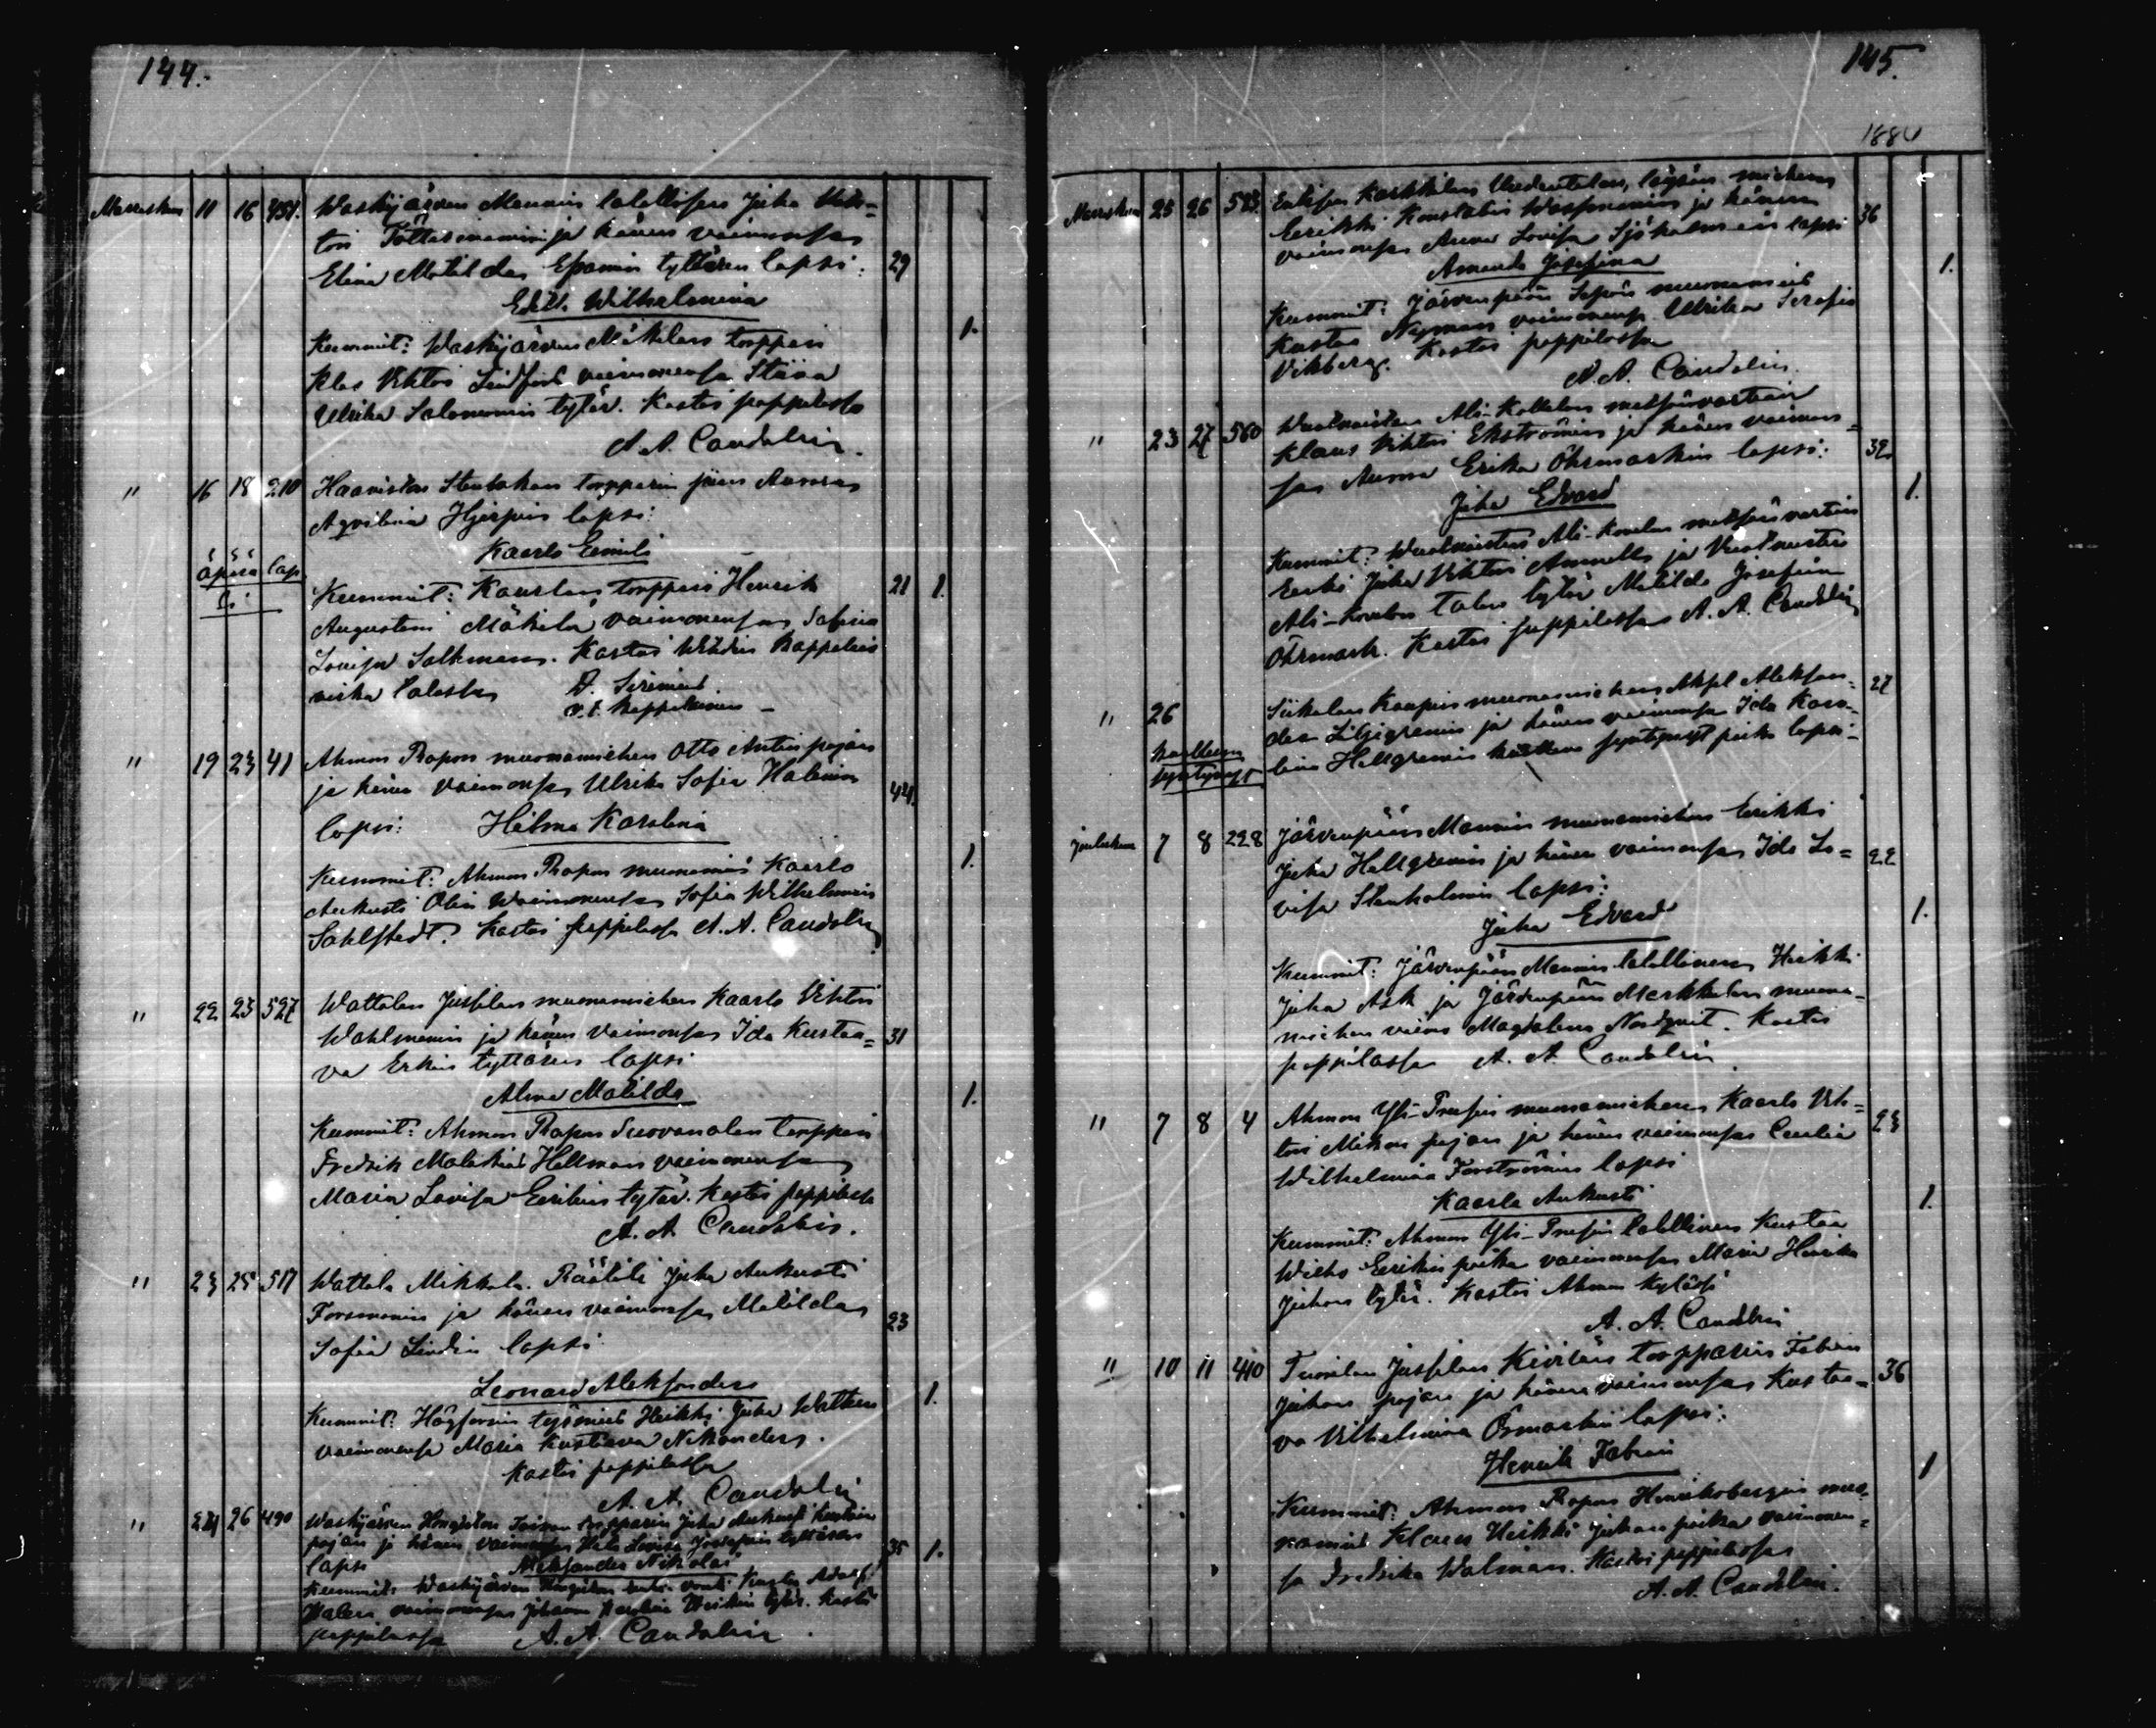 144.
Marraskuu 11 16 451. Waskijärven Mannin lalollisen Juha Vik=
tori Töttermannin ja hänen vaimonsa
Elina Matildan Esamin tyttären lapsi: 29
Edla Wilhelmina
Kummit: Waskijärven Mäkelän torppari 1.
Klas Viktor Lindfors vaimonensa Stiina
Ulrika Salomonin tytär. Kastoi pappilassa
A. A. Candolin.
" 16 18 210 Haaviston Stenbakan torpparin piian Aurora
Aqvilina Hjerpein lapsi:
Kaarlo Eemili
äpärä lap
si
Kummit: Kaurlan torppari Henrik 21 1.
Augustini Mäkelä vaimonensa Sofia
Lovisa Salkman. Kastoi Wihdin Kappelin
A. Sirenius
v.t. Kappalainen
" 19 23 41 Ahmon Rapon muonamiehen Otto Antin pojan
ja hänen vaimonsa Ulrika Sofia Halmin 44.
lapsi: Hilma Karolina
Kummit: Ahmon Rapon muonamies Kaarlo 1.
Aukusti Olin vaimonensa Sofia Wilhelmina
Sahlstedt. Kastoi pappilassa A. A. Candolin
" 22 23 527 Wattolan Jussilan muonamiehen Kaarlo Viktori
Wahlmanin ja hänen vaimonsa Ida Kustaa= 31
va Erkin tyttären lapsi
Alma Matilda 1.
Kummit: Ahmon Rapon Suovanolan torppari
Fredrik Malakias Hellman vaimonensa
Maria Lovisa Eerikin tytär. Kastoi pappilassa
A. A. Candolin.
" 23 25 517 Wattola Mikkola. Räätäli Juha Aukusti
Forsmanin ja hänen vaimonsa Matildan 23
Sofia Lindin lapsi
Leonard Aleksander 1.
Kummit: Högforsin työmies Heikki Juha Watken
vaimonensa Maria Kustaava Nikander.
Kastoi pappilassa
A. A. Candolin
" 24 26 490 Waskijärven Hongiston Toivon torpparin Juha Aukusti Kustaan
pojan ja hänen vaimonsa Lovisa Josefiin tyttären 35 1.
lapsi Aleksander Nikolai
Kummit: Waskijärven Hongiston vouti Kustaa Adolf
Walen vaimonensa Johanna Karolina Heikin tytär. Kastoi
pappilassa A. A. Candolin.
145.
1880
Marraskuu 25 26 593 Karkkilan Uudentalon, löysän miehen
Eerikki Konstatin Wasseniuksen ja hänen 36
vaimonsa Anna Lovisa Sjöholmin lapsi
Amanda Josefina 1.
Kummit: Järvenpään Sepän muonamies
Kustaa Nyman vaimonensa Ulrika Serafia
Vikberg. Kastoi pappilassa
A. A. Candolin.
" 23 27 560 Ali-Kolkolan metsänvartian
Klaus Viktor Ekströmin ja hänen vaimon=
sa Anna Erika Öhrmarkin lapsi: 32
Juha Edvard 1.
Kummit: Ali-Kovelan metsänvartia
Juha Viktori ja
Ali-Kovelan talon tytär Matilda Josefina
Öhrmark. Kastoi pappilassa A. A. Candolin
" 26 Siikalan Kaupin muonamiehen Aksel Aleksan= 27
der Liljegrenin ja hänen vaimonsa Ida Karo=
kuolleena
syntynyt
lina Hellgrenin kuollena syntynyt poika lapsi
Joulukuu 7 8 228 Järvenpään Mannin muonamiehen Eerikki
Juha Hellgrenin ja hänen vaimonsa Ida Lo= 22
visa Stenholmin lapsi:
Juha Edvard 1.
Kummit: Järvenpään Mannin lalollinen Heikki
Juha Ask ja Järvenpään Markkulan muona=
miehen vaimo Magdalena Nordqvist. Kastoi
pappilassa A. A. Candolin
" 7 8 4 Ahmon Yli-Prusin muonamiehen Kaarlo Vik= 23
tori Mikon pojan ja hänen vaimonsa Cecilia
Wilhelmina Forströmin lapsi
Kaarlo Aukusti 1.
Kummit: Ahmon Yli-Prusin lalollinen Kustaa
Wilho Eerikin poika vaimonensa Maria Henrika
Juhon tytär. Kastoi Ahmon kylässä
A. A. Candolin
" 10 11 410 Tuorilan Jussilan Kivilän torpparin Fabian 36
Juhan pojan ja hänen vaimonsa Kustaa=
va Vilhelmina Örmarkin lapsi:
Henrik Fabian 1
Kummit: Ahmon Rapon Henriksbergin muo=
namies Klaus Heikki Juhan poika vaimonen=
sa Fredrika Walman. Kastoi pappilassa
A. A. Candolin.